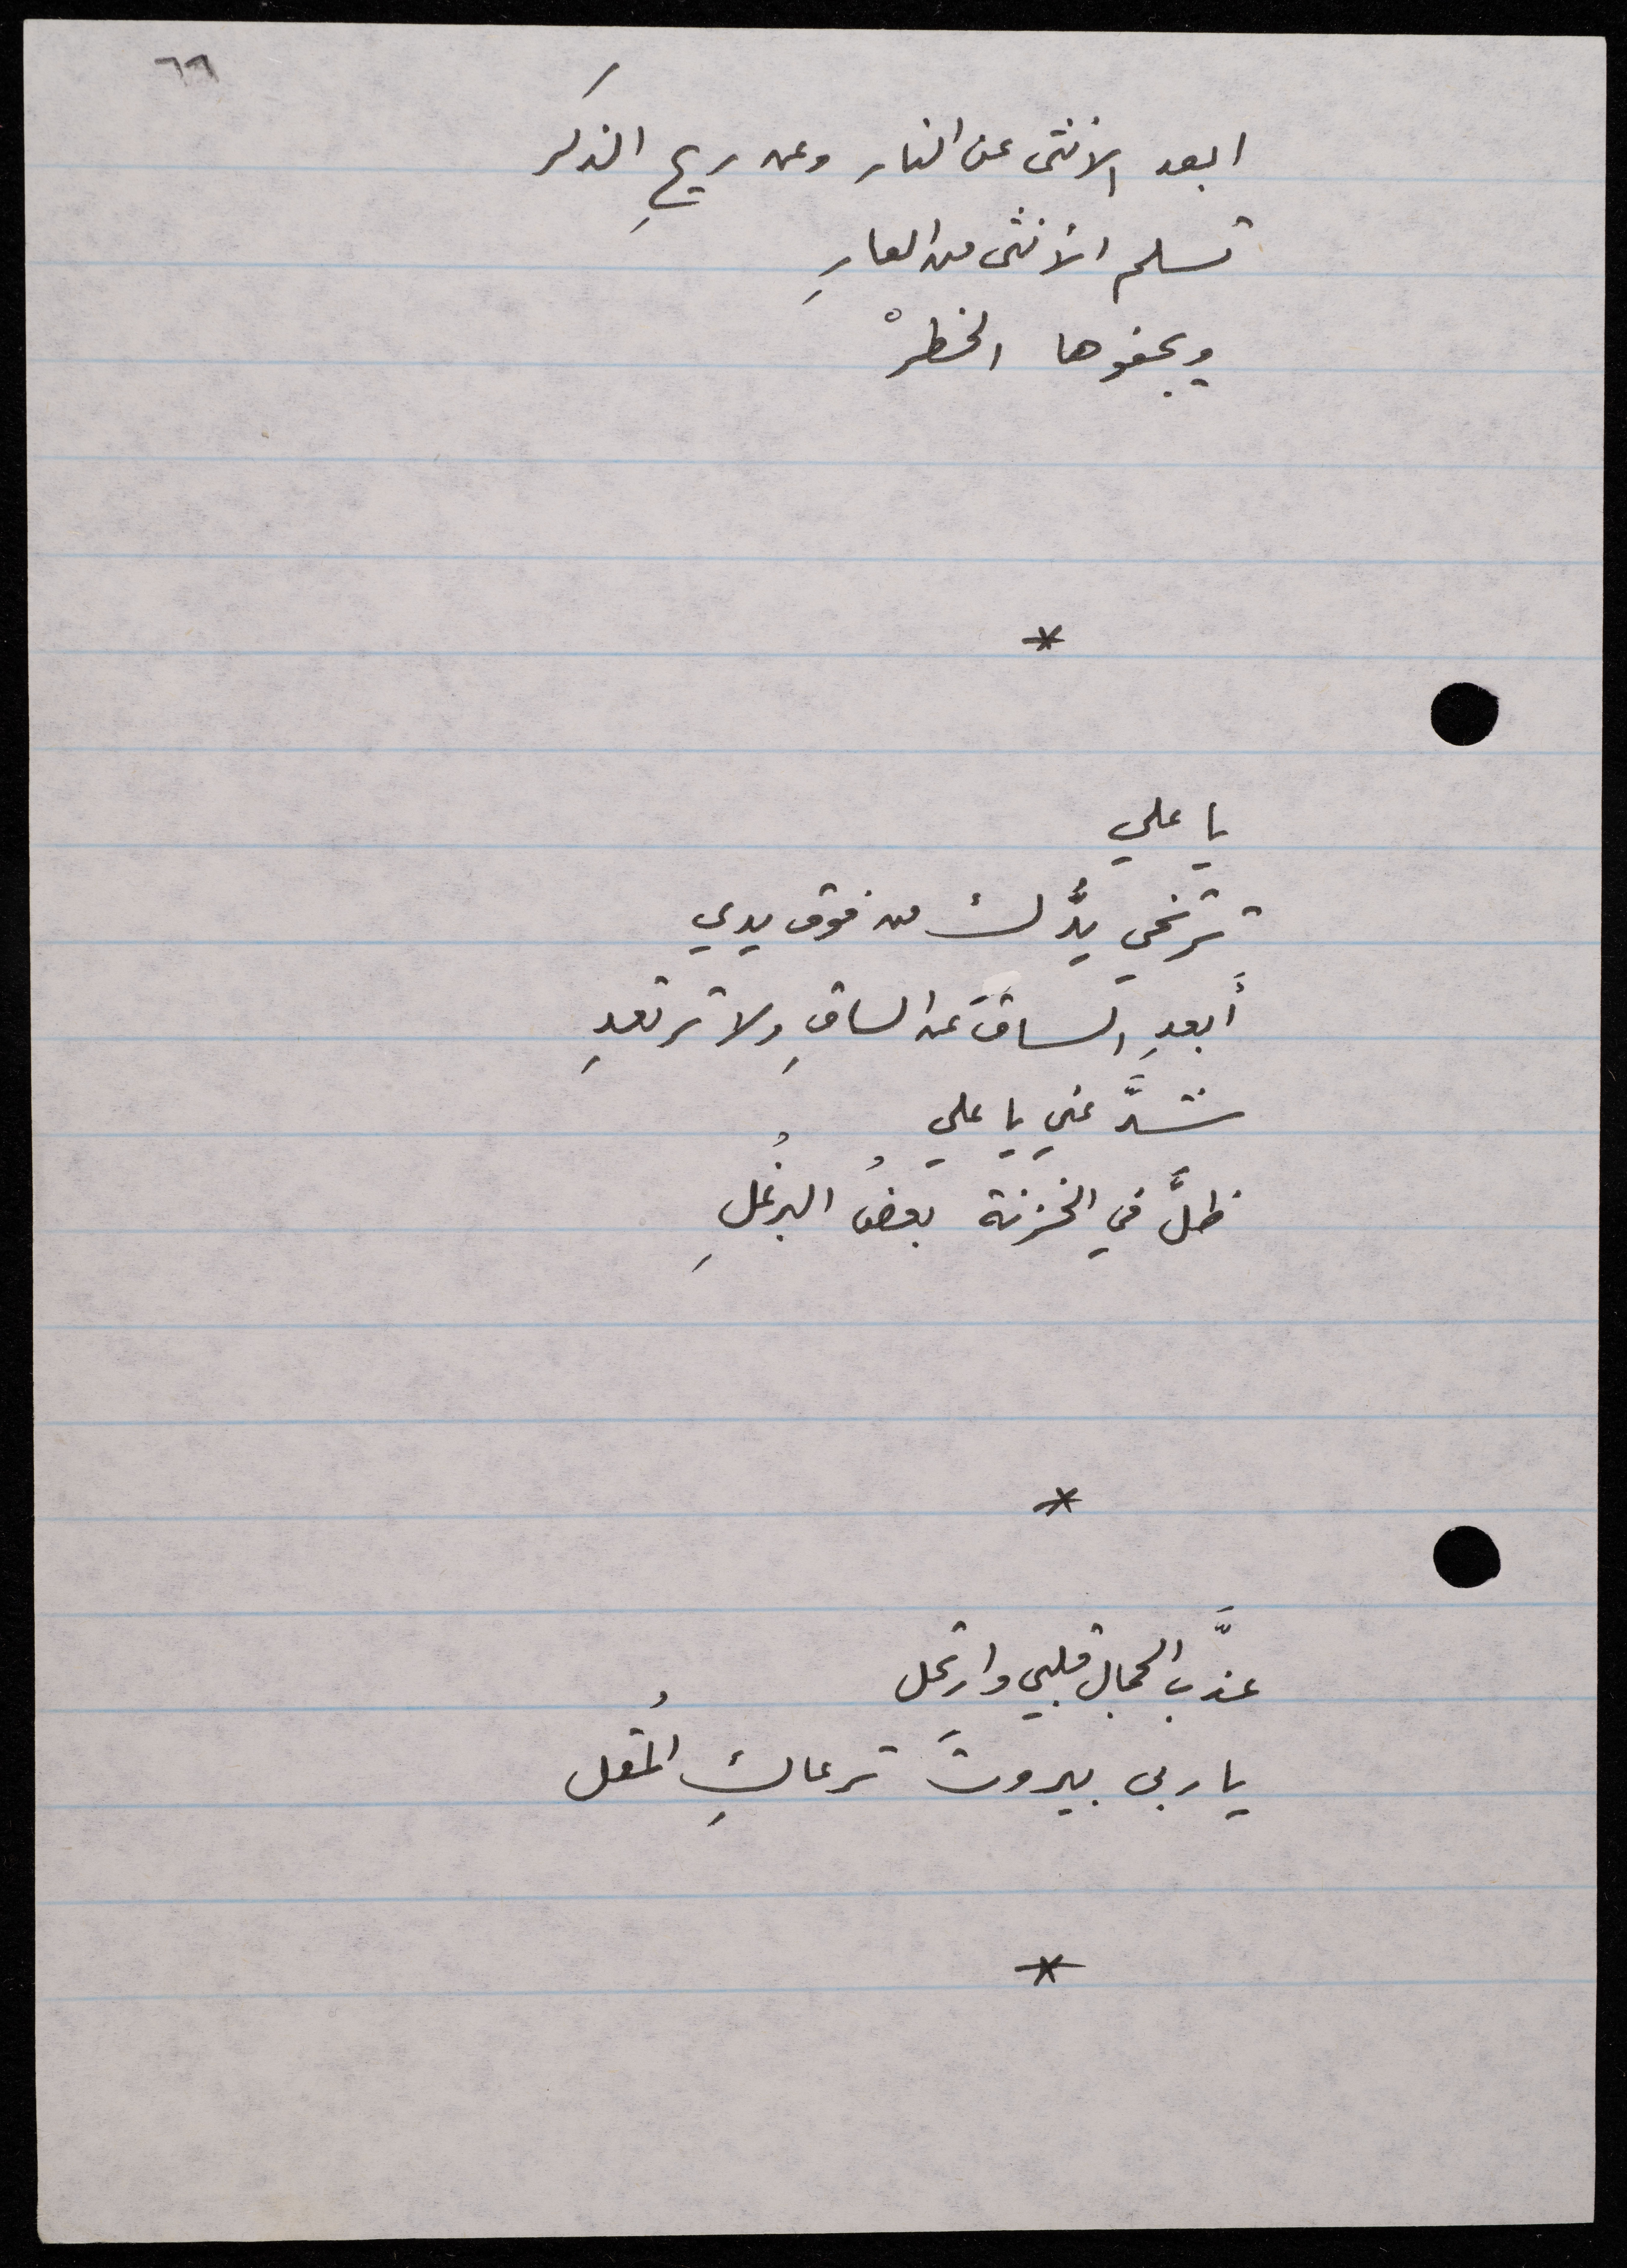 ٦٦
ابعد الانثى عن النار وعن ريحِ الذكر
تسلم الأنثى من العارِ
ويجفوها الخطرْ
*
يا علي
ترتخي يدُّك من فوق يدي
أَبعدِ الساقَ عن الساقِ ولا ترتعدِ
شدَّ عني يا علي
ظلَّ في الخزنة بعضُ البرغُلِ
*
عذَّب الجمال قلبي وارتحل
يا ربى بيروتَ ترعاكِ المُقل
*